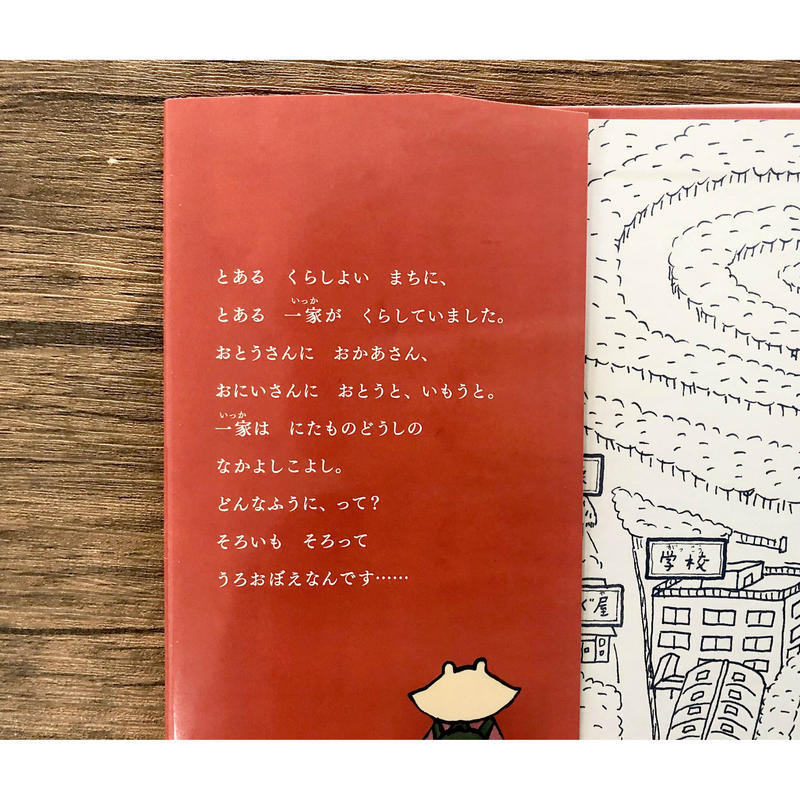 とある　くらしよい　まちに、
とある　一家が　くらしていました。
おとうさんに　おかあさん、
おにいさんに　おとうと、いもうと。
一家は　にたものどうしの
なかよしこよし。
どんなふうに、って？
そろいも　そろって
うろおぼえなんです……
がっこう
学校
ぐ屋